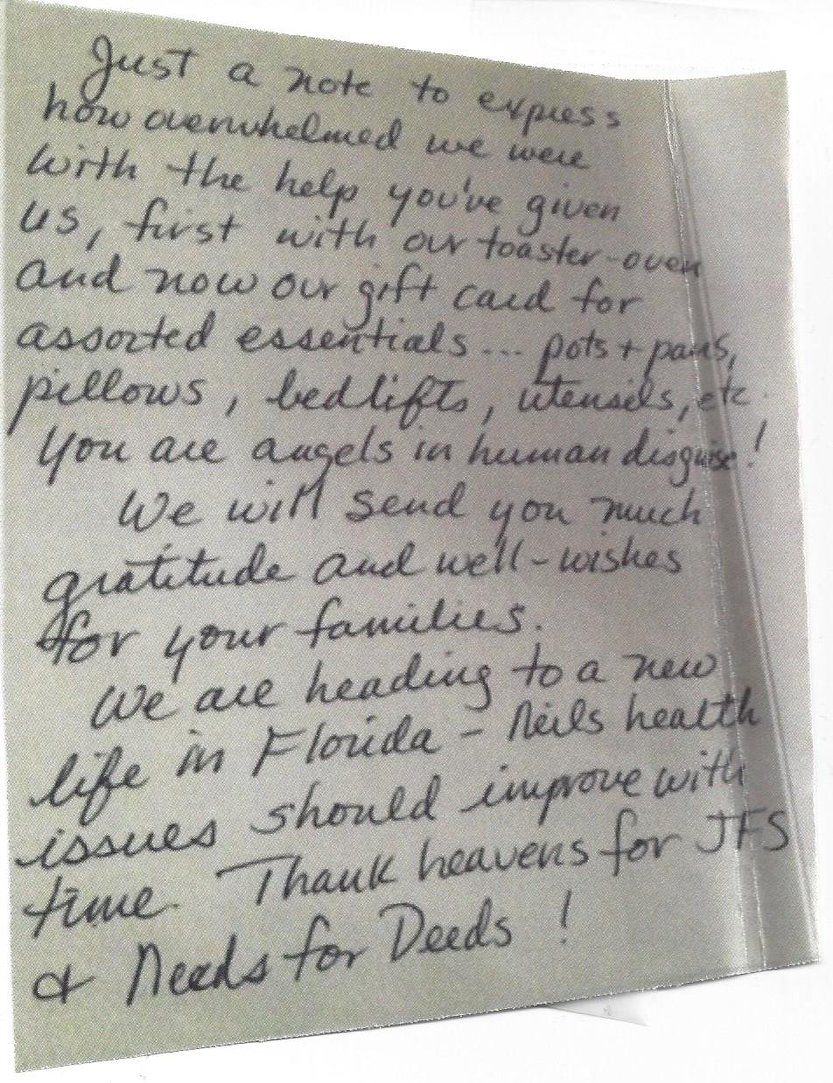 Just a note to express
how overwhelmed we were
with the help you've given
us, first with our toaster-oven
and now our gift card for
assorted essentials... pots + pans,
pillows, bedlifts, utensils, etc.
You are angels in human disguise!
We will send you much
gratitude and well-wishes
for your families.
We are heading to a new
life in Florida - Neils health
issues should improve with
time. Thank heavens for JFS
& Needs for Deeds!